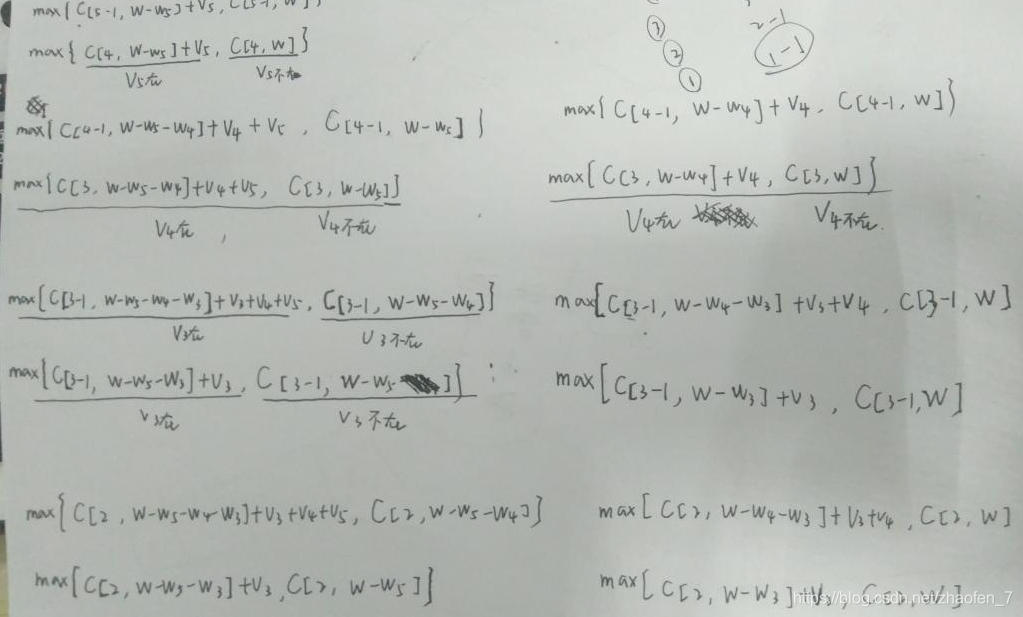 max{ C[5-1, W-W5]+V5, C[5-1, W]}
max{ C[4, W-W5]+V5, C[4, W]}
V5在 V5不在
max{ C[4-1, W-W5-W4]+V4+V5, C[4-1, W-W5] }
max{C[3, W-W5-W4]+V4+V5, C[3, W-W5]}
V4在, V4不在
max{C[3-1, W-W5-W4-W3]+V3+V4+V5, C[3-1, W-W5-W4]}
V3在 V3不在
max{C[3-1, W-W5-W3]+V3, C[3-1, W-W5]}
V3在 V3不在
max{C[2, W-W5-W4-W3]+V3+V4+V5, C[2, W-W5-W4]}
max[C[2, W-W5-W3]+V3, C[2, W-W5]}
③
②
①
2-1
1-1
max{ C[4-1, W-W4]+V4, C[4-1, W]}
max[ C[3, W-W4]+V4, C[3, W]}
V4在 V4不在.
max[C[3-1, W-W4-W3]+V3+V4, C[3-1, W]
max[C[3-1, W-W3]+V3, C[3-1, W]
max[ C[2, W-W4-W3]+V3+V4, C[2, W]
max[ C[2, W-W3]+V3, C[2, W]
https://blog.csdn.net/zhaofen_7